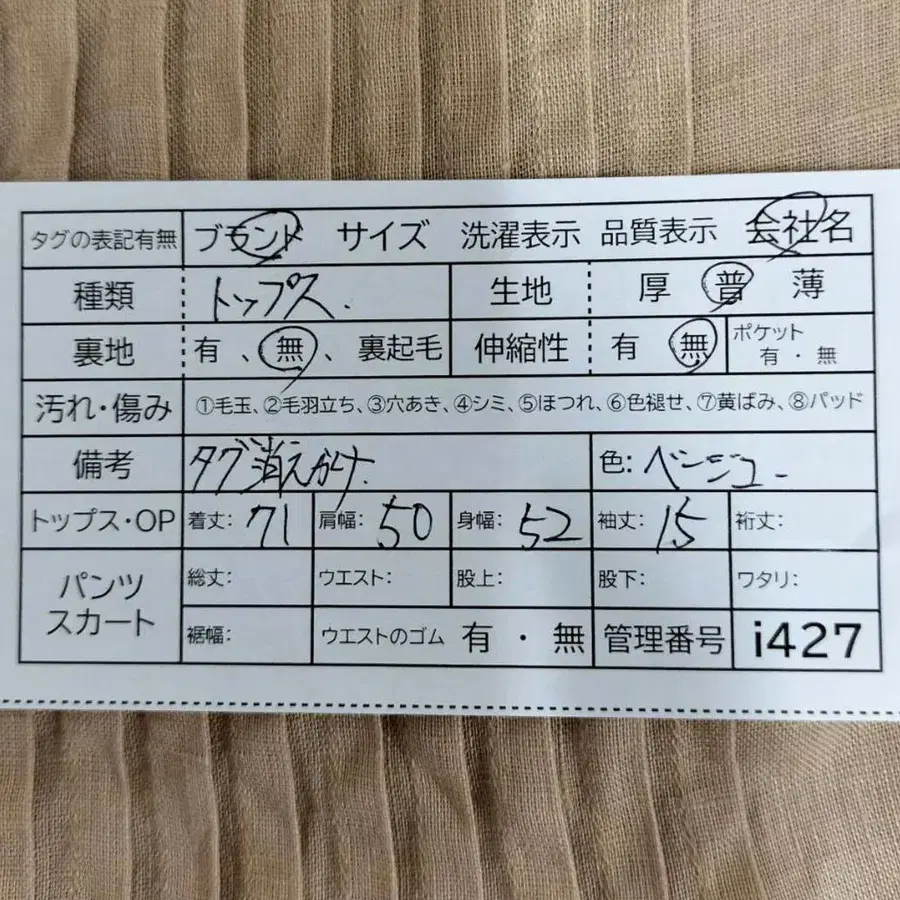 タグの表記有無 ブランド サイズ 洗濯表示 品質表示 会社名
種類 トップス. 生地 厚 普 薄
裏地 有、無、裏起毛 伸縮性 有 無 ポケット 有・無
汚れ・傷み ①毛玉、②毛羽立ち、③穴あき、④シミ、⑤ほつれ、⑥色褪せ、⑦黄ばみ、⑧パッド
備考 タグ消えかけ. 色: ベージュー
トップス・OP 着丈: 71 肩幅: 50 身幅: 52 袖丈: 15 裄丈:
パンツ スカート 総丈: ウエスト: 股上: 股下: ワタリ:
裾幅: ウエストのゴム 有・無 管理番号 i427